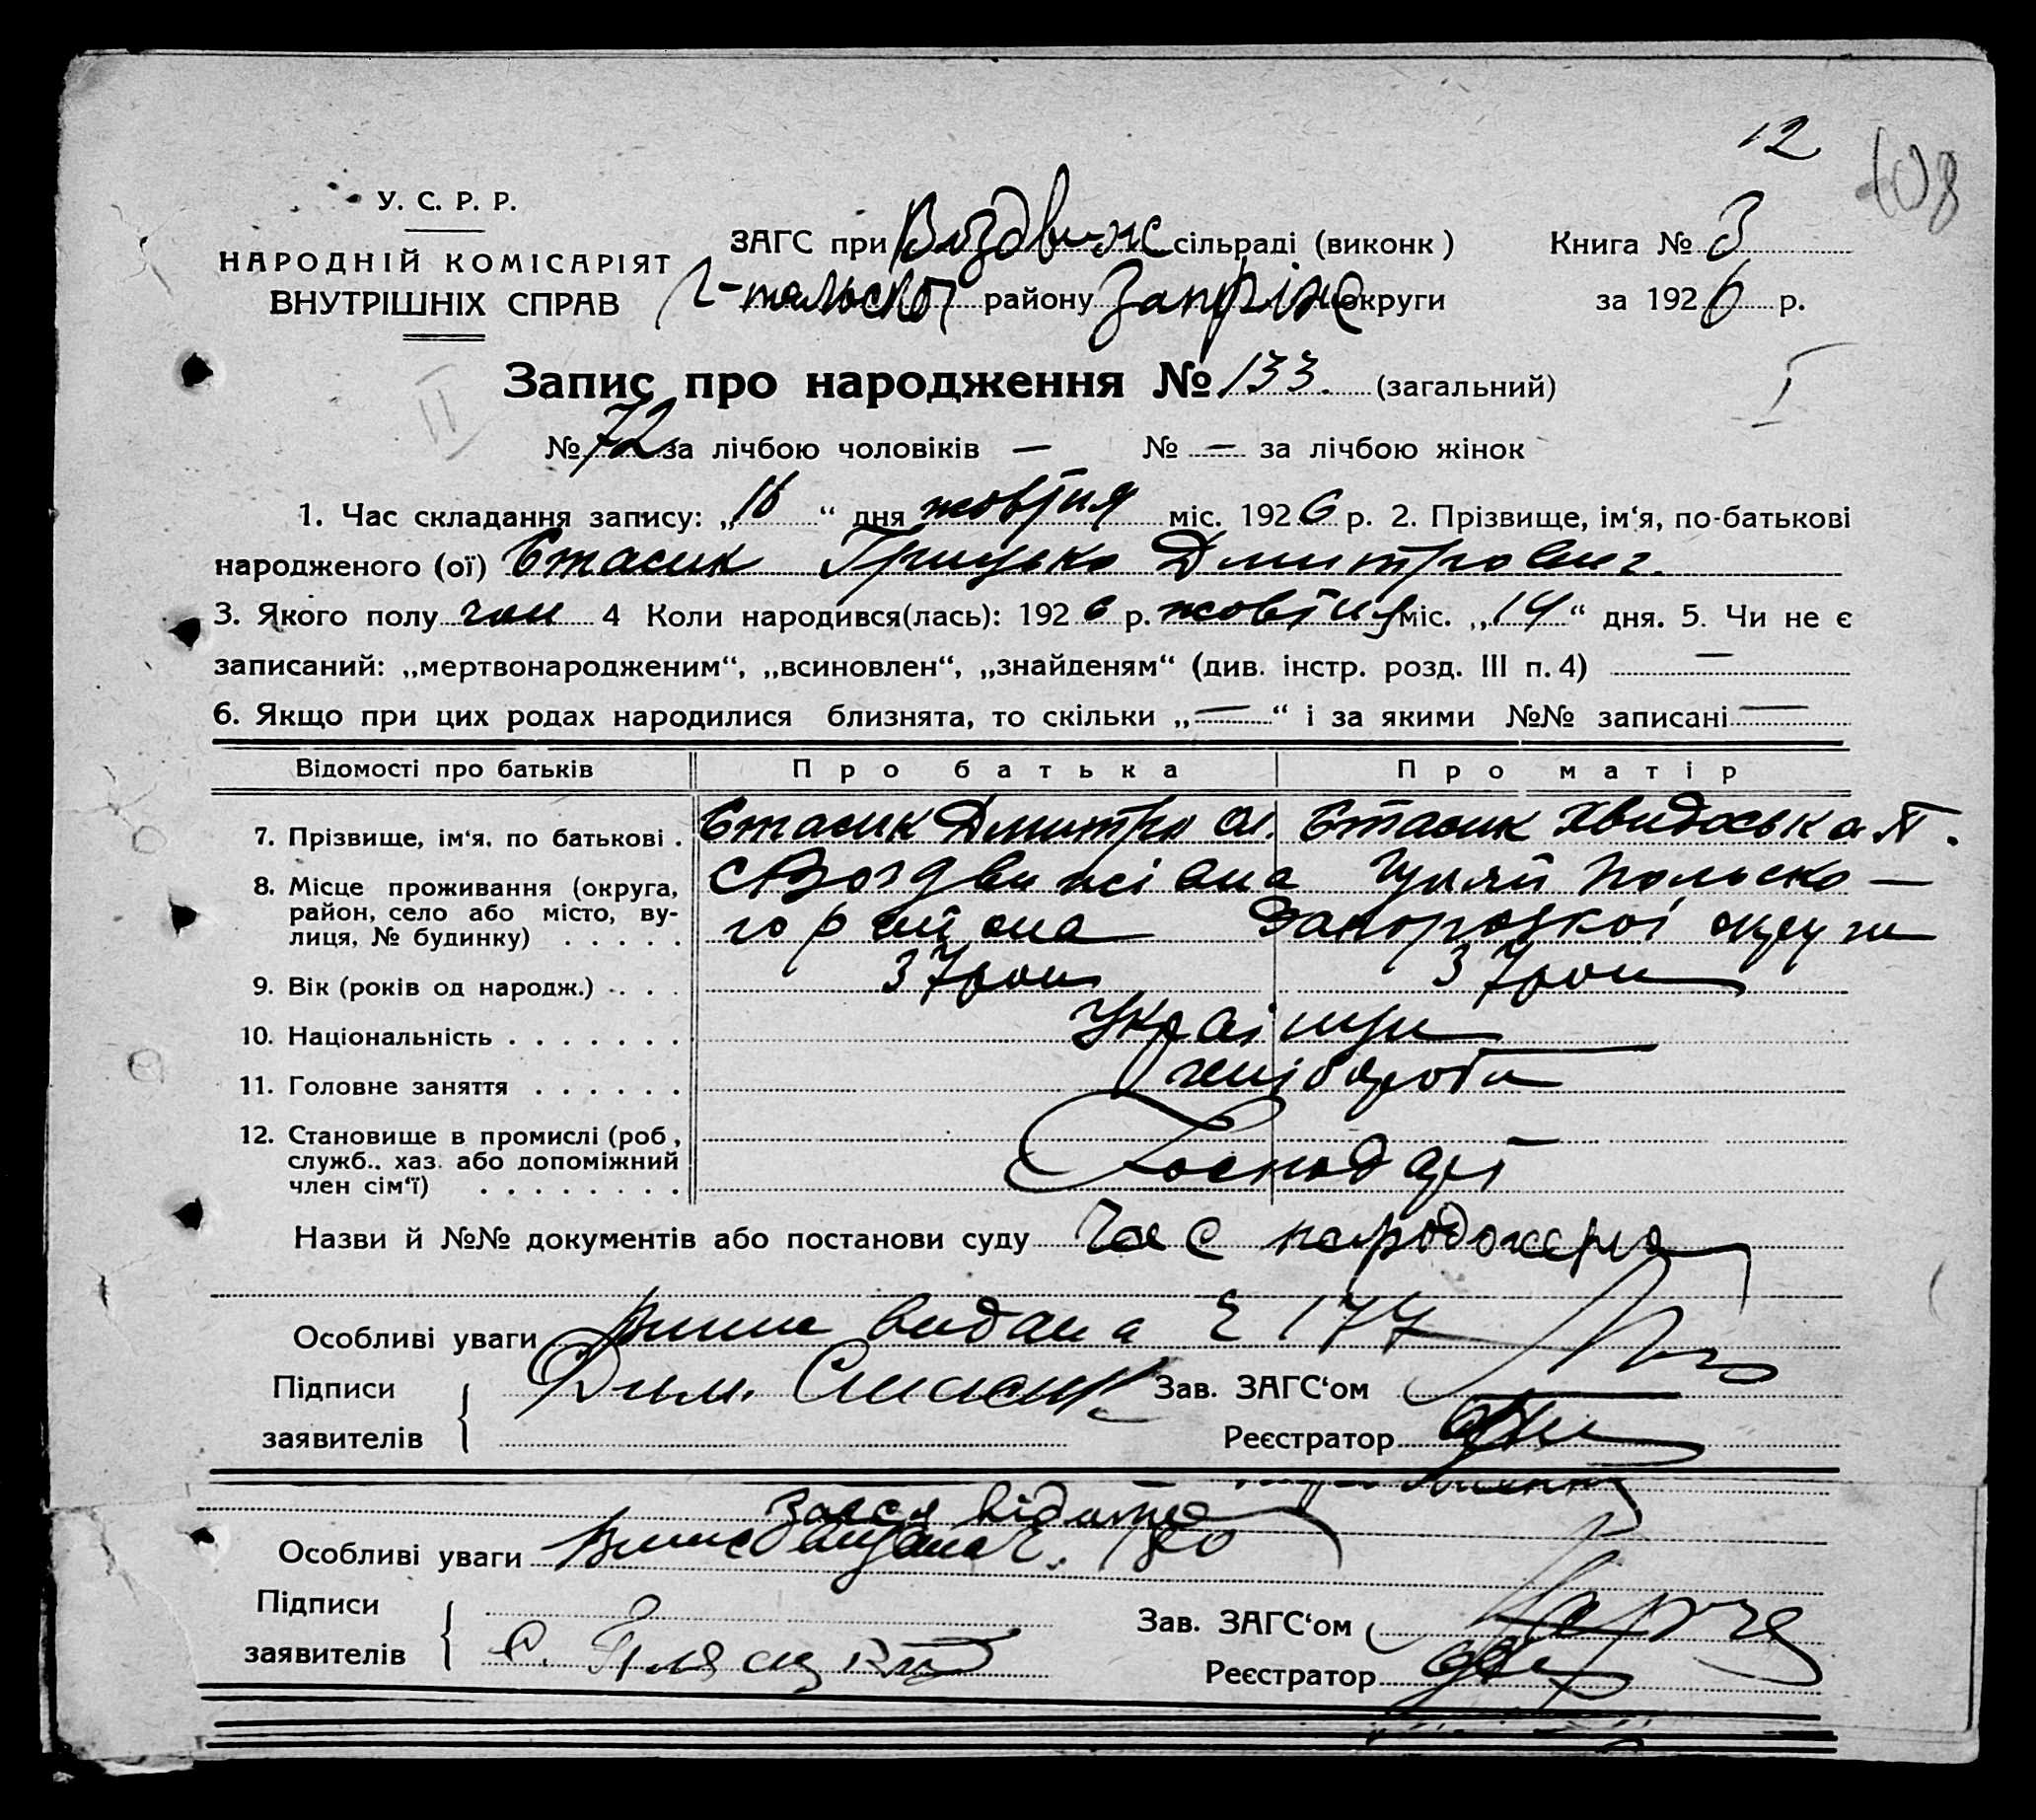 12
108
У. С. Р. Р.
НАРОДНІЙ КОМІСАРІЯТ
ВНУТРІШНІХ СПРАВ
ЗАГС при Воздвиж сільраді (виконк)
Г-польсько района Запріж округи
Книга № 3
за 1926 р.
Запис про народження № 133. (загальний)
I
II
№ 72 за лічбою чоловіків — № — за лічбою жінок
1. Час складання запису: „16“ дня жовтня міс. 1926 р. 2. Прізвище, ім‘я, по-батькові
народженого (ої) Стасик Грицько Дмитрович.
3. Якого полу чол 4 Коли народився(лась): 1926 р. жовтня міс. „14“ дня. 5. Чи не є
записаний: „мертвонародженим“, „всиновлен“, „знайденям“ (див. інстр. розд. III п. 4) —
6. Якщо при цих родах народилися близнята, то скільки „—“ і за якими №№ записані —
Відомості про батьків Про батька Про матір
7. Прізвище, ім‘я, по батькові . Стасик Дмитро Ол. Стасик Хвидоська П.
8. Місце проживання (округа, с Воздвижівка Гуляй Польсько —
район, село або місто, ву- го района Запорозкої округи
лиця, № будинку) . . . . .
9. Вік (років од народж.) . . . 37 рок 37 рок
10. Національність . . . . . . . Українци
11. Головне заняття . . . . . . хлібороби
12. Становище в промислі (роб,
служб., хаз. або допоміжний Господарі
член сім‘ї) . . . . . . . .
Назви й №№ документів або постанови суду Час народження
Особливі уваги Випис видана 177
Підписи Дим. Стасик Зав. ЗАГС‘ом
заявителів Реєстратор
Заяся відома
Особливі уваги Випис видана 180
Підписи Зав. ЗАГС‘ом
заявителів Реєстратор